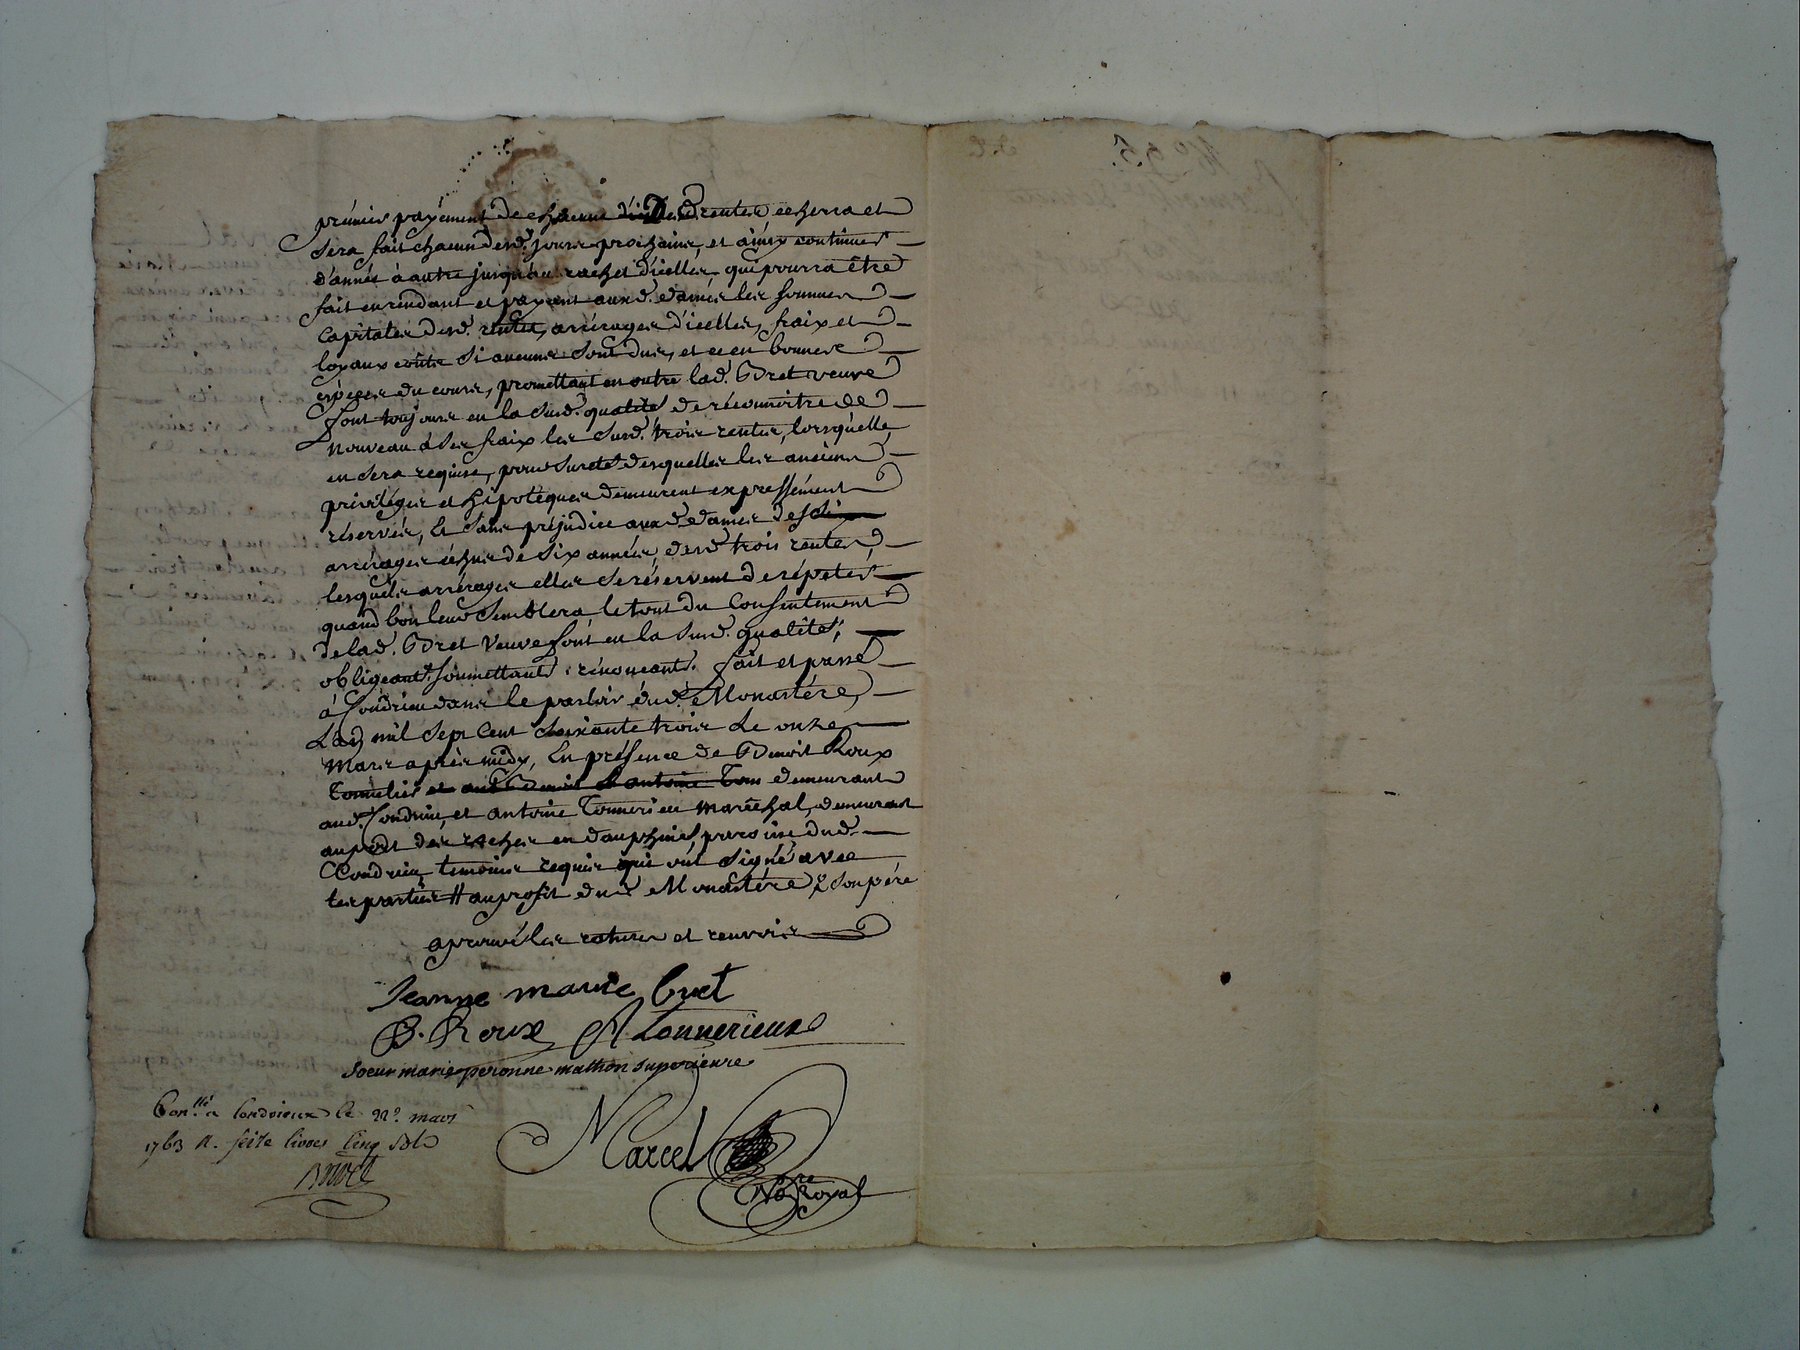 prémier payement de chacune d'icelles rentes echerra et
sera fait chacun desd. jours prochains, et ainsy continuer
d'année à autre jusqu'au rachet d'icelles, qui pourra être
fait en rendant et payant auxd. dames les sommes
capitales desd. rentes, arrérages d'icelles, fraix et
loyaux coûts si aucuns sont dus, et ce en bonnes
espèces du cours, promettant en outre lad. Bret veuve
font toujours en la susd. qualité de réconnoitre de
nouveau à ses fraix les susd. trois rentes, lorsqu'elle
en sera requise, pour sureté desquelles les anciens
privilèges et hipotèques demeurent expressément
réservés, et sans préjudice auxd. dames des
arrérages échus de six années desd. trois rentes,
lesquels arrérages elles se réservent de répeter
quand bon leur semblera le tout du consentement
de lad. Bret veuve font en la susd. qualité,
obligeant. soumettant. rénonceant. fait et passé
à Condrieu dans le parloir dud. Monastére,
L'an mil sept cent soixante trois Le onze
Mars après midy, En présence de Benoit Roux
Tonnelier et Antoine demeurant
aud. Condrieu, et antoine Tonnerieu maréchal, demeurant
au port des raches en dauphiné, paroisse dud.
Condrieu, temoins requis qui ont signé avec
les parties # au profit dud. Monastére
aprouvé les ratures et renvois
Jeanne marie bret
B. Roux A tonnerieux
soeur marie peronne mathon superieure
Con.llé a Condrieux le 22e mars
1763 R. seize livres cinq sols
Marcel
No.re Royal